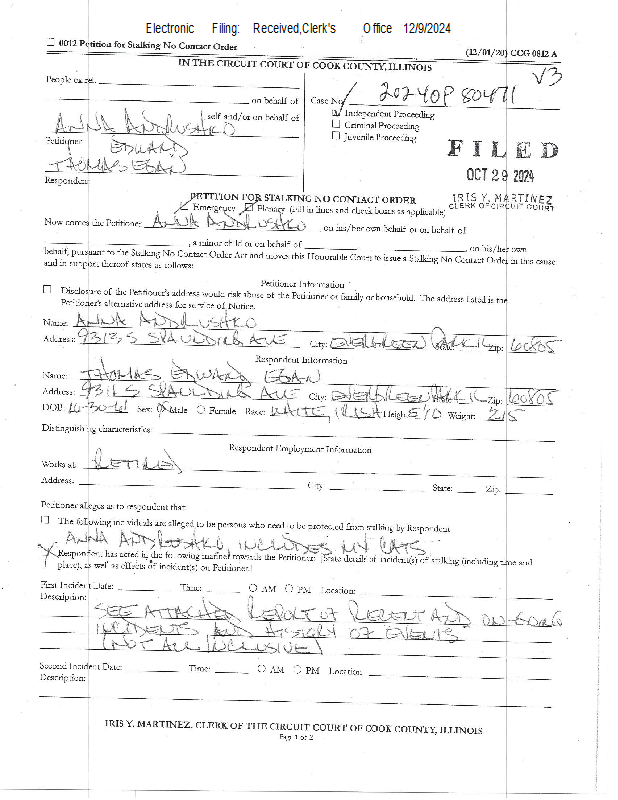 Electronic Filing: Received,Clerk's Office 12/9/2024
☐ 0012 Petition for Stalking No Contact Order (12/01/20) CCG 0812 A
IN THE CIRCUIT COURT OF COOK COUNTY, ILLINOIS
V3
People ex rel.
on behalf of
Case No. 2024OP80471
self and/or on behalf of
ANNA ANDRUSHKO
Petitioner
☑ Independent Proceeding
☐ Criminal Proceeding
☐ Juvenile Proceeding
EDWARD
THOMAS EGAN
Respondent
FILED
OCT 29 2024
IRIS Y. MARTINEZ
CLERK OF CIRCUIT COURT
PETITION FOR STALKING NO CONTACT ORDER
Emergency ☑ Plenary (fill in lines and check boxes as applicable)
Now comes the Petitioner, ANNA ANDRUSHKO , on his/her own behalf or on behalf of
, a minor child or on behalf of , on his/her own
behalf, pursuant to the Stalking No Contact Order Act and moves this Honorable Court to issue a Stalking No Contact Order in this cause
and in support thereof states as follows:
Petitioner Information
☐ Disclosure of the Petitioner's address would risk abuse of the Petitioner or family or household. The address listed is the
Petitioner's alternative address for service of Notice.
Name: ANNA ANDRUSHKO
Address: 9313 S SPAULDING AVE City: EVERGREEN PARK IL Zip: 60805
Respondent Information
Name: THOMAS EDWARD EGAN
Address: 9311 S SPAULDING AVE City: EVERGREEN PARK IL Zip: 60805
DOB: 10-30-61 Sex: ⊗ Male ○ Female Race: WHITE, IRISH Height: 5'10 Weight: 215
Distinguishing characteristics:
Respondent Employment Information
Works at: RETIRED
Address: City State: Zip:
Petitioner alleges as to respondent that:
☐ The following individuals are alleged to be persons who need to be protected from stalking by Respondent
ANNA ANDRUSHKO INCLUDES MY CATS
X Respondent has acted in the following manner towards the Petitioner: (State details of incident(s) of stalking (including time and
place), as well as effects of incident(s) on Petitioner.)
First Incident Date: Time: ○ AM ○ PM Location:
Description:
SEE ATTACHED REPORT OF RECENT AND ON-GOING
INCIDENTS AND HISTORY OF EVENTS
(NOT ALL INCLUSIVE)
Second Incident Date: Time: ○ AM ○ PM Location:
Description:
IRIS Y. MARTINEZ, CLERK OF THE CIRCUIT COURT OF COOK COUNTY, ILLINOIS
Page 1 of 2